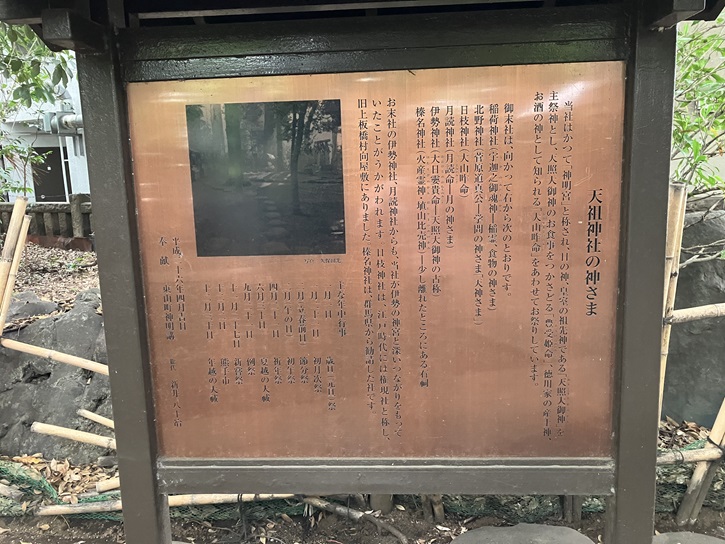 天祖神社の神さま
当社はかつて、「神明宮」と称され、日の神・皇室の祖先神である「天照大御神」を
主祭神とし、天照大御神のお食事をつかさどる「豊受姫命」、徳川家の産土神、
お酒の神として知られる「大山咋命」をあわせてお祭りしています。
御末社は、向かって右から次のとおりです。
稲荷神社(宇迦之御魂神―稲霊、食物の神さま)
北野神社(菅原道真公―学問の神さま、天神さま)
日枝神社(大山咋命)
月読神社(月読命―月の神さま)
伊勢神社(大日孁貴命―天照大御神の古称)
榛名神社(火産霊神・埴山比売神―少し離れたところにある石祠)
お末社の伊勢神社、月読神社からも、当社が伊勢の神宮と深いつながりをもって
いたことがうかがわれます。日枝神社は、江戸時代には権現社と称し、
旧上板橋村向屋敷にありました。榛名神社は、群馬県から勧請した社です。
主な年中行事
一月一日 歳旦(元旦)祭
初月次祭
二月立春前日 節分祭
二月(午の日) 初午祭
祈年祭
六月三十日 夏越の大祓
例祭
十一月二十七日 新嘗祭
熊手市
年越の大祓
平成二十六年四月吉日
奉献 東山町神明講